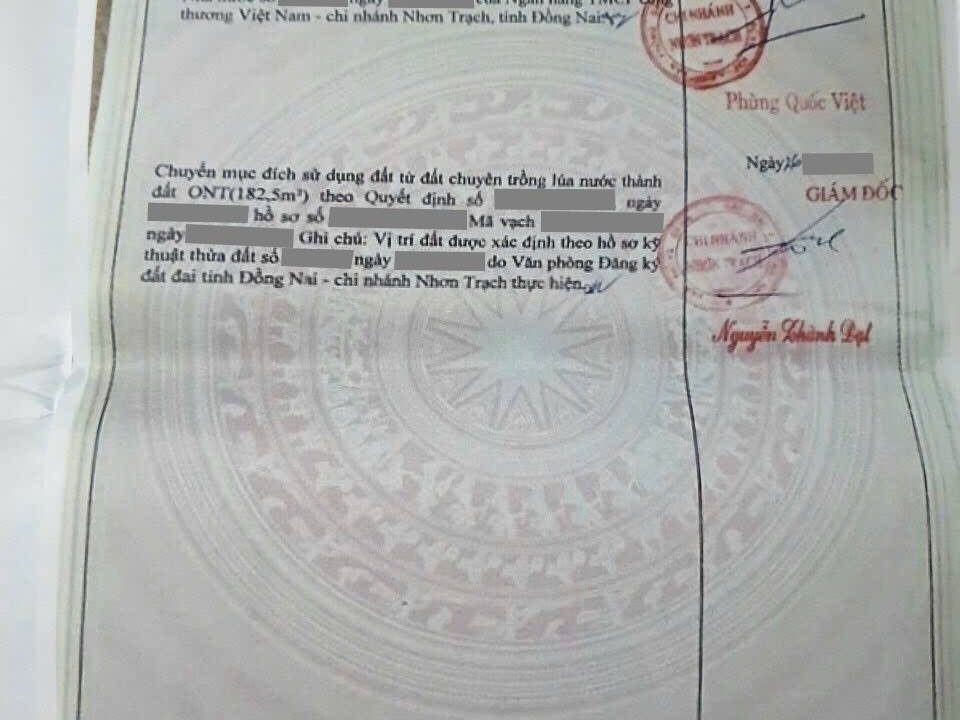 của Ngân hàng TMCP Công
thương Việt Nam - chi nhánh Nhơn Trạch, tỉnh Đồng Nai
CHI NHÁNH
NHƠN TRẠCH
Phùng Quốc Việt
Chuyển mục đích sử dụng đất từ đất chuyên trồng lúa nước thành
đất ONT(182,5m²) theo Quyết định số ngày
hồ sơ số Mã vạch
ngày Ghi chú: Vị trí đất được xác định theo hồ sơ kỹ
thuật thửa đất số ngày do Văn phòng Đăng ký
đất đai tỉnh Đồng Nai - chi nhánh Nhơn Trạch thực hiện.
Ngày 26
GIÁM ĐỐC
CHI NHÁNH
NHƠN TRẠCH
Nguyễn Thành Đạt